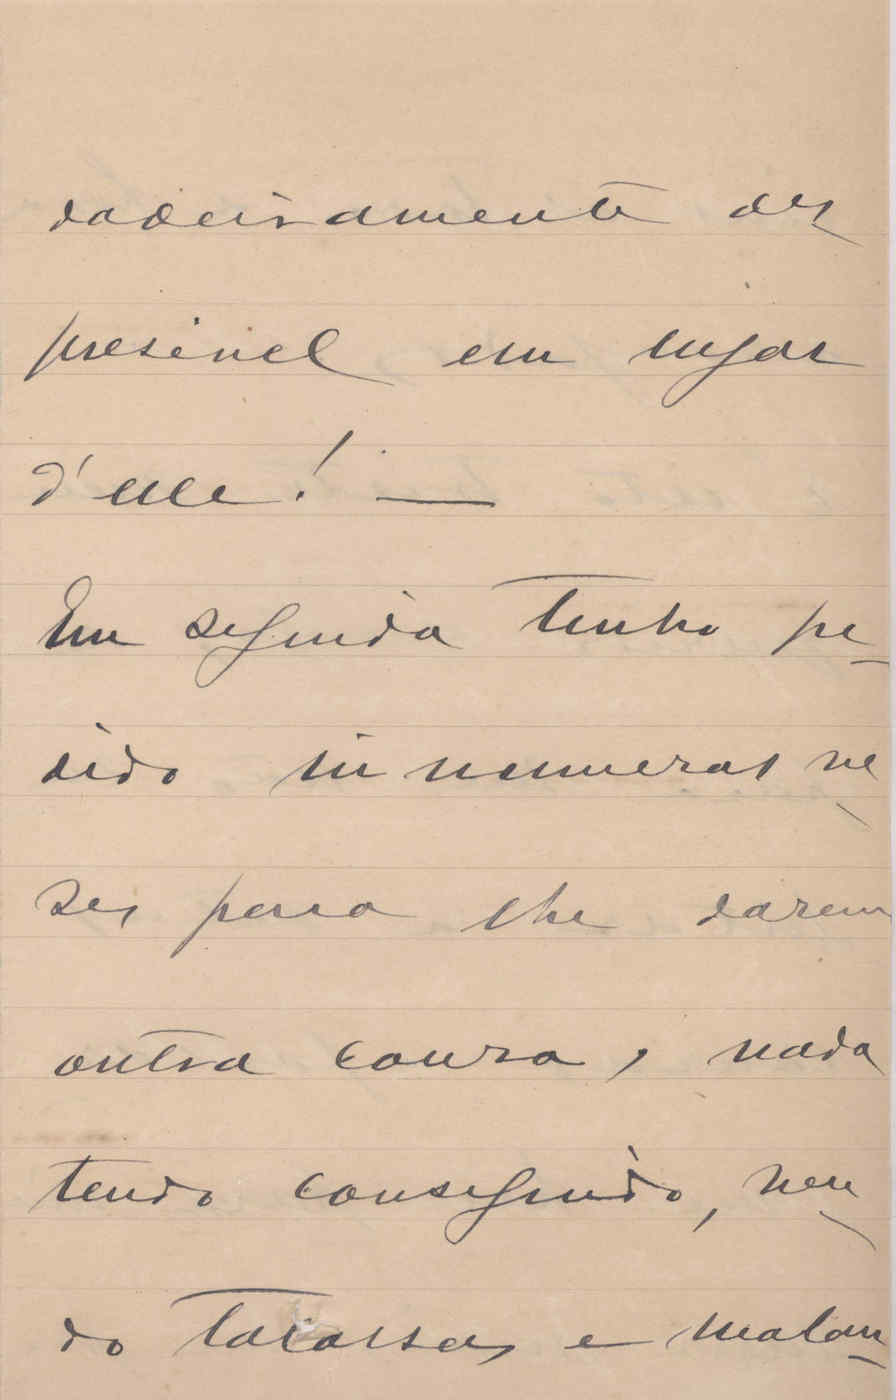 dadeiramente des-
presivel em lugar
d'elle! —
Em seguida tenho pe-
dido innumeras ve-
zes para lhe darem
outra cousa, nada
tendo conseguido, ven-
do talassas e malan-